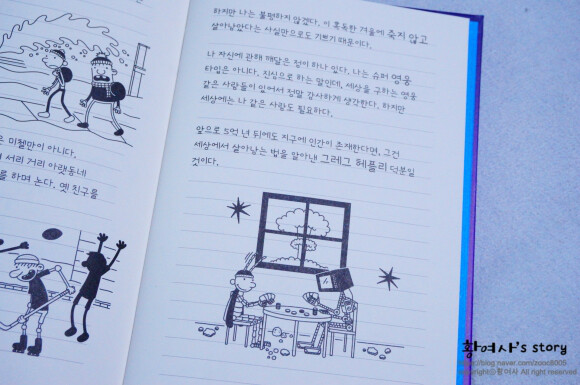 은 미첼만이 아니다.
서리 거리 아랫동네
를 하며 논다. 옛 친구를
하지만 나는 불평하지 않겠다. 이 혹독한 겨울에 죽지 않고
살아남았다는 사실만으로도 기쁘기 때문이다.
나 자신에 관해 깨달은 점이 하나 있다. 나는 슈퍼 영웅
타입은 아니다. 진심으로 하는 말인데, 세상을 구하는 영웅
같은 사람들이 있어서 정말 감사하게 생각한다. 하지만
세상에는 나 같은 사람도 필요하다.
앞으로 5억 년 뒤에도 지구에 인간이 존재한다면, 그건
세상에서 살아남는 법을 알아낸 그레그 헤플리 덕분일
것이다.
황여사's story
http://blog.naver.com/zooc8005
copyright ⓒ 황여사 All right reserved